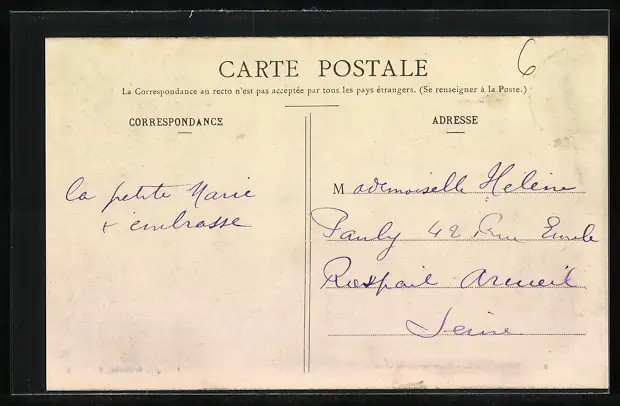 CARTE POSTALE
6
La Correspondance au recto n'est pas acceptée par tous les pays étrangers. (Se renseigner à la Poste.)
CORRESPONDANCE
La petite Marie
t'embrasse
ADRESSE
Mademoiselle Helène
Pauly 42 Rue Emile
Raspail Arcueil
Seine